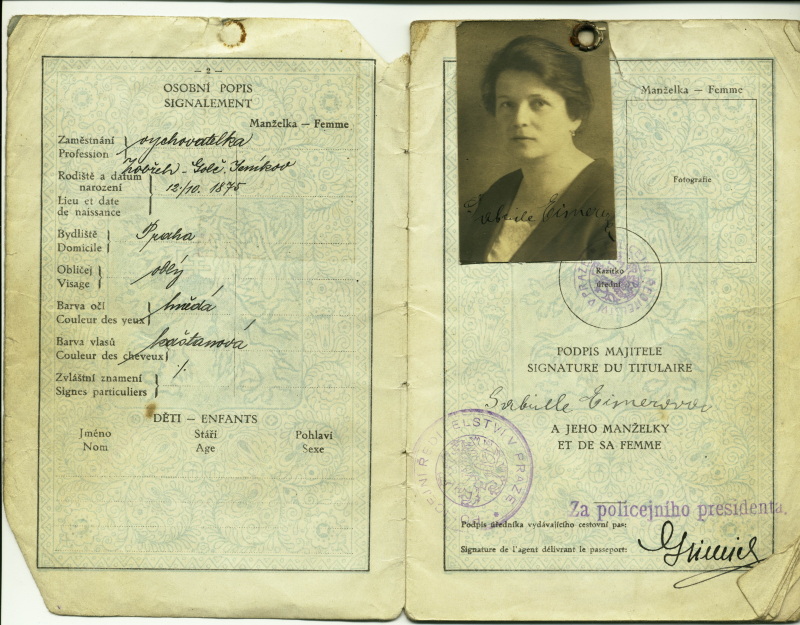 — 2 —
OSOBNÍ POPIS
SIGNALEMENT
Manželka — Femme
Zaměstnání
Profession
vychovatelka
Rodiště a datum
narození
Golč. Jeníkov
12./10. 1875
Lieu et date
de naissance
Bydliště
Domicile
Praha
Obličej
Visage
oblý
Barva očí
Couleur des yeux
hnědá
Barva vlasů
Couleur des cheveux
kaštanová
Zvláštní znamení
Signes particuliers
./.
DĚTI — ENFANTS
Jméno Stáří Pohlaví
Nom Age Sexe
Manželka — Femme
Fotografie
Razítko
úřední
PODPIS MAJITELE
SIGNATURE DU TITULAIRE
A JEHO MANŽELKY
ET DE SA FEMME
Za policejního presidenta.
Podpis úředníka vydávajícího cestovní pas:
Signature de l'agent délivrant le passeport: